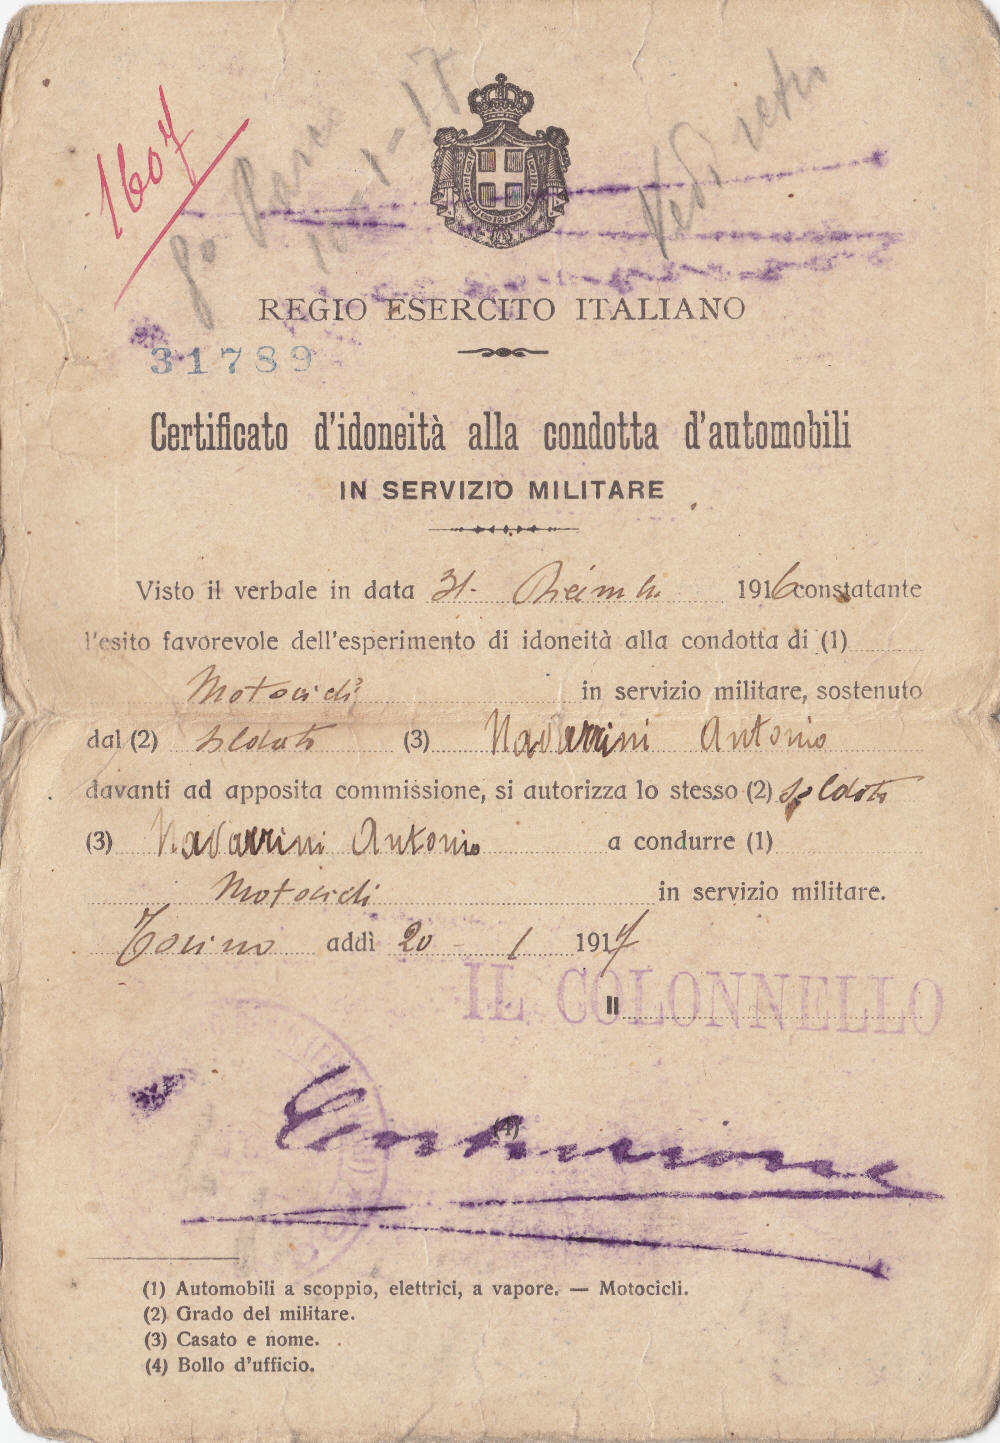 1607
10-1-17
Vedi retro
REGIO ESERCITO ITALIANO
31789
Certificato d'idoneità alla condotta d'automobili
IN SERVIZIO MILITARE
Visto il verbale in data 31. Dicembre 1916 constatante
l'esito favorevole dell'esperimento di idoneità alla condotta di (1)
Motocicli in servizio militare, sostenuto
dal (2) soldato (3) Navarrini Antonio
davanti ad apposita commissione, si autorizza lo stesso (2) soldato
(3) Navarrini Antonio a condurre (1)
Motocicli in servizio militare.
Torino addì 20 - 1 1917
IL COLONNELLO
Il
(4)
(1) Automobili a scoppio, elettrici, a vapore. — Motocicli.
(2) Grado del militare.
(3) Casato e nome.
(4) Bollo d'ufficio.